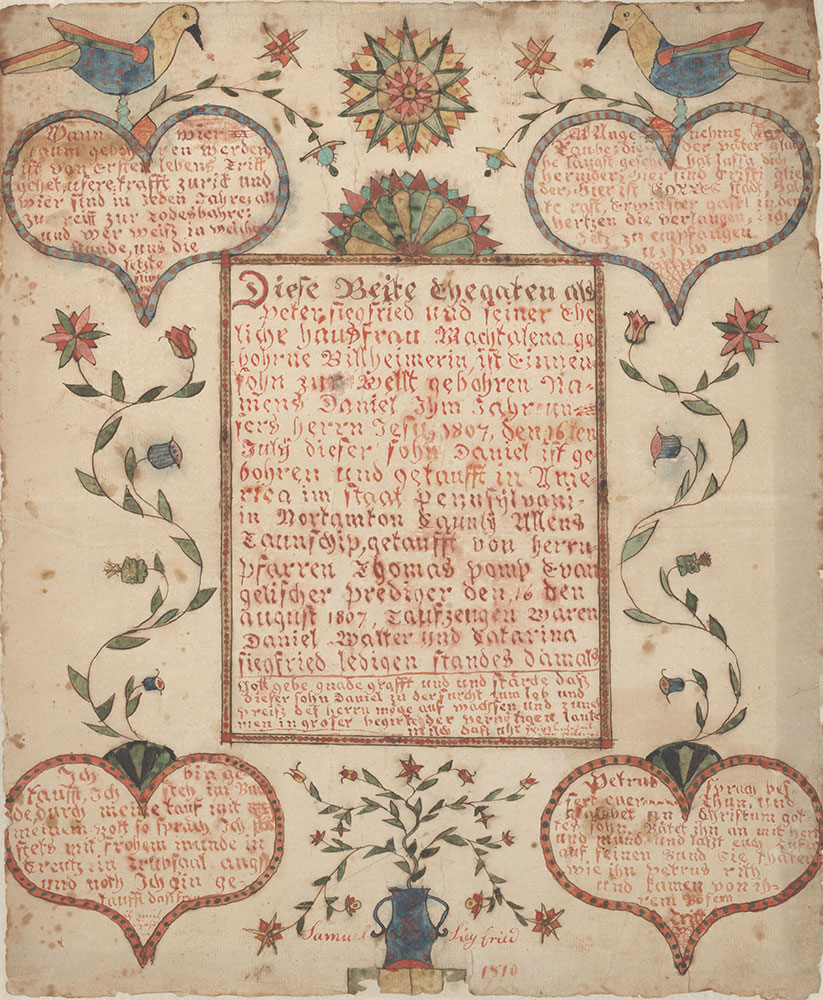 Wann wier
kaum gebohren werden
ist von ersten lebens Tritt
gehet, usere, krafft zurick und
wier sind in Jeden Jahre, all
zu reiff zur Todesbahre,
und wer weitz in welcher
stunde, uns die
letzte
Ange nehme
Taube, die der väter
be längst geschen hat lassa dich
hernider, hier sind
der, hier ist stadt,
in den
hertzen die verlangen, dich
Jetz zu empfangen
Diese Beite Ehegaten als
Peter, siegfried und seiner Ehe
liche hausfrau Machtalena ge
bohrne Billheimerin, ist Einnen
sohn zur Wellt gebohren Na-
mens Daniel Ihm Jahr un-
sers herrn Jesu, 1807, den 16 ten
July dieser sohn Daniel ist ge
bohren und getaufft in Ame-
rica im staat Pennsylvani-
in Nortamton Caunty Allens
Taunschip, getaufft von herrn
Pfarren Thomas pomp Evan
gelischer prediger den, 16 den
august 1807, Taufzeugen Waren
Daniel Walter und Catarina
siegfried ledigen standes damals
Gott gebe gnade grafft und und stärcke daß
dieser sohn Daniel in der furcht zum lob und
preitz des herrn möge auf wachsen und zune
men in groser begirte der
Ich bin ge
taufft, Ich steh im Bun
de, durch meine tauf mit
meinem Gott so sprach Ich
stets mit frohem munde in
Creutz in Trubsaal angst
und noth Ich bin ge
taufft
Petrus sprach bes
sert euer Thun, und
glaubet an Christum got-
tes sohn, Bätet ihn an mit hertz
und mund und latzt euch
auf seinen Bund Sie thäten
wie ihn petrus rith
und kamen von ih-
rem Bösem
tritt
Samuel Siegfried
1810